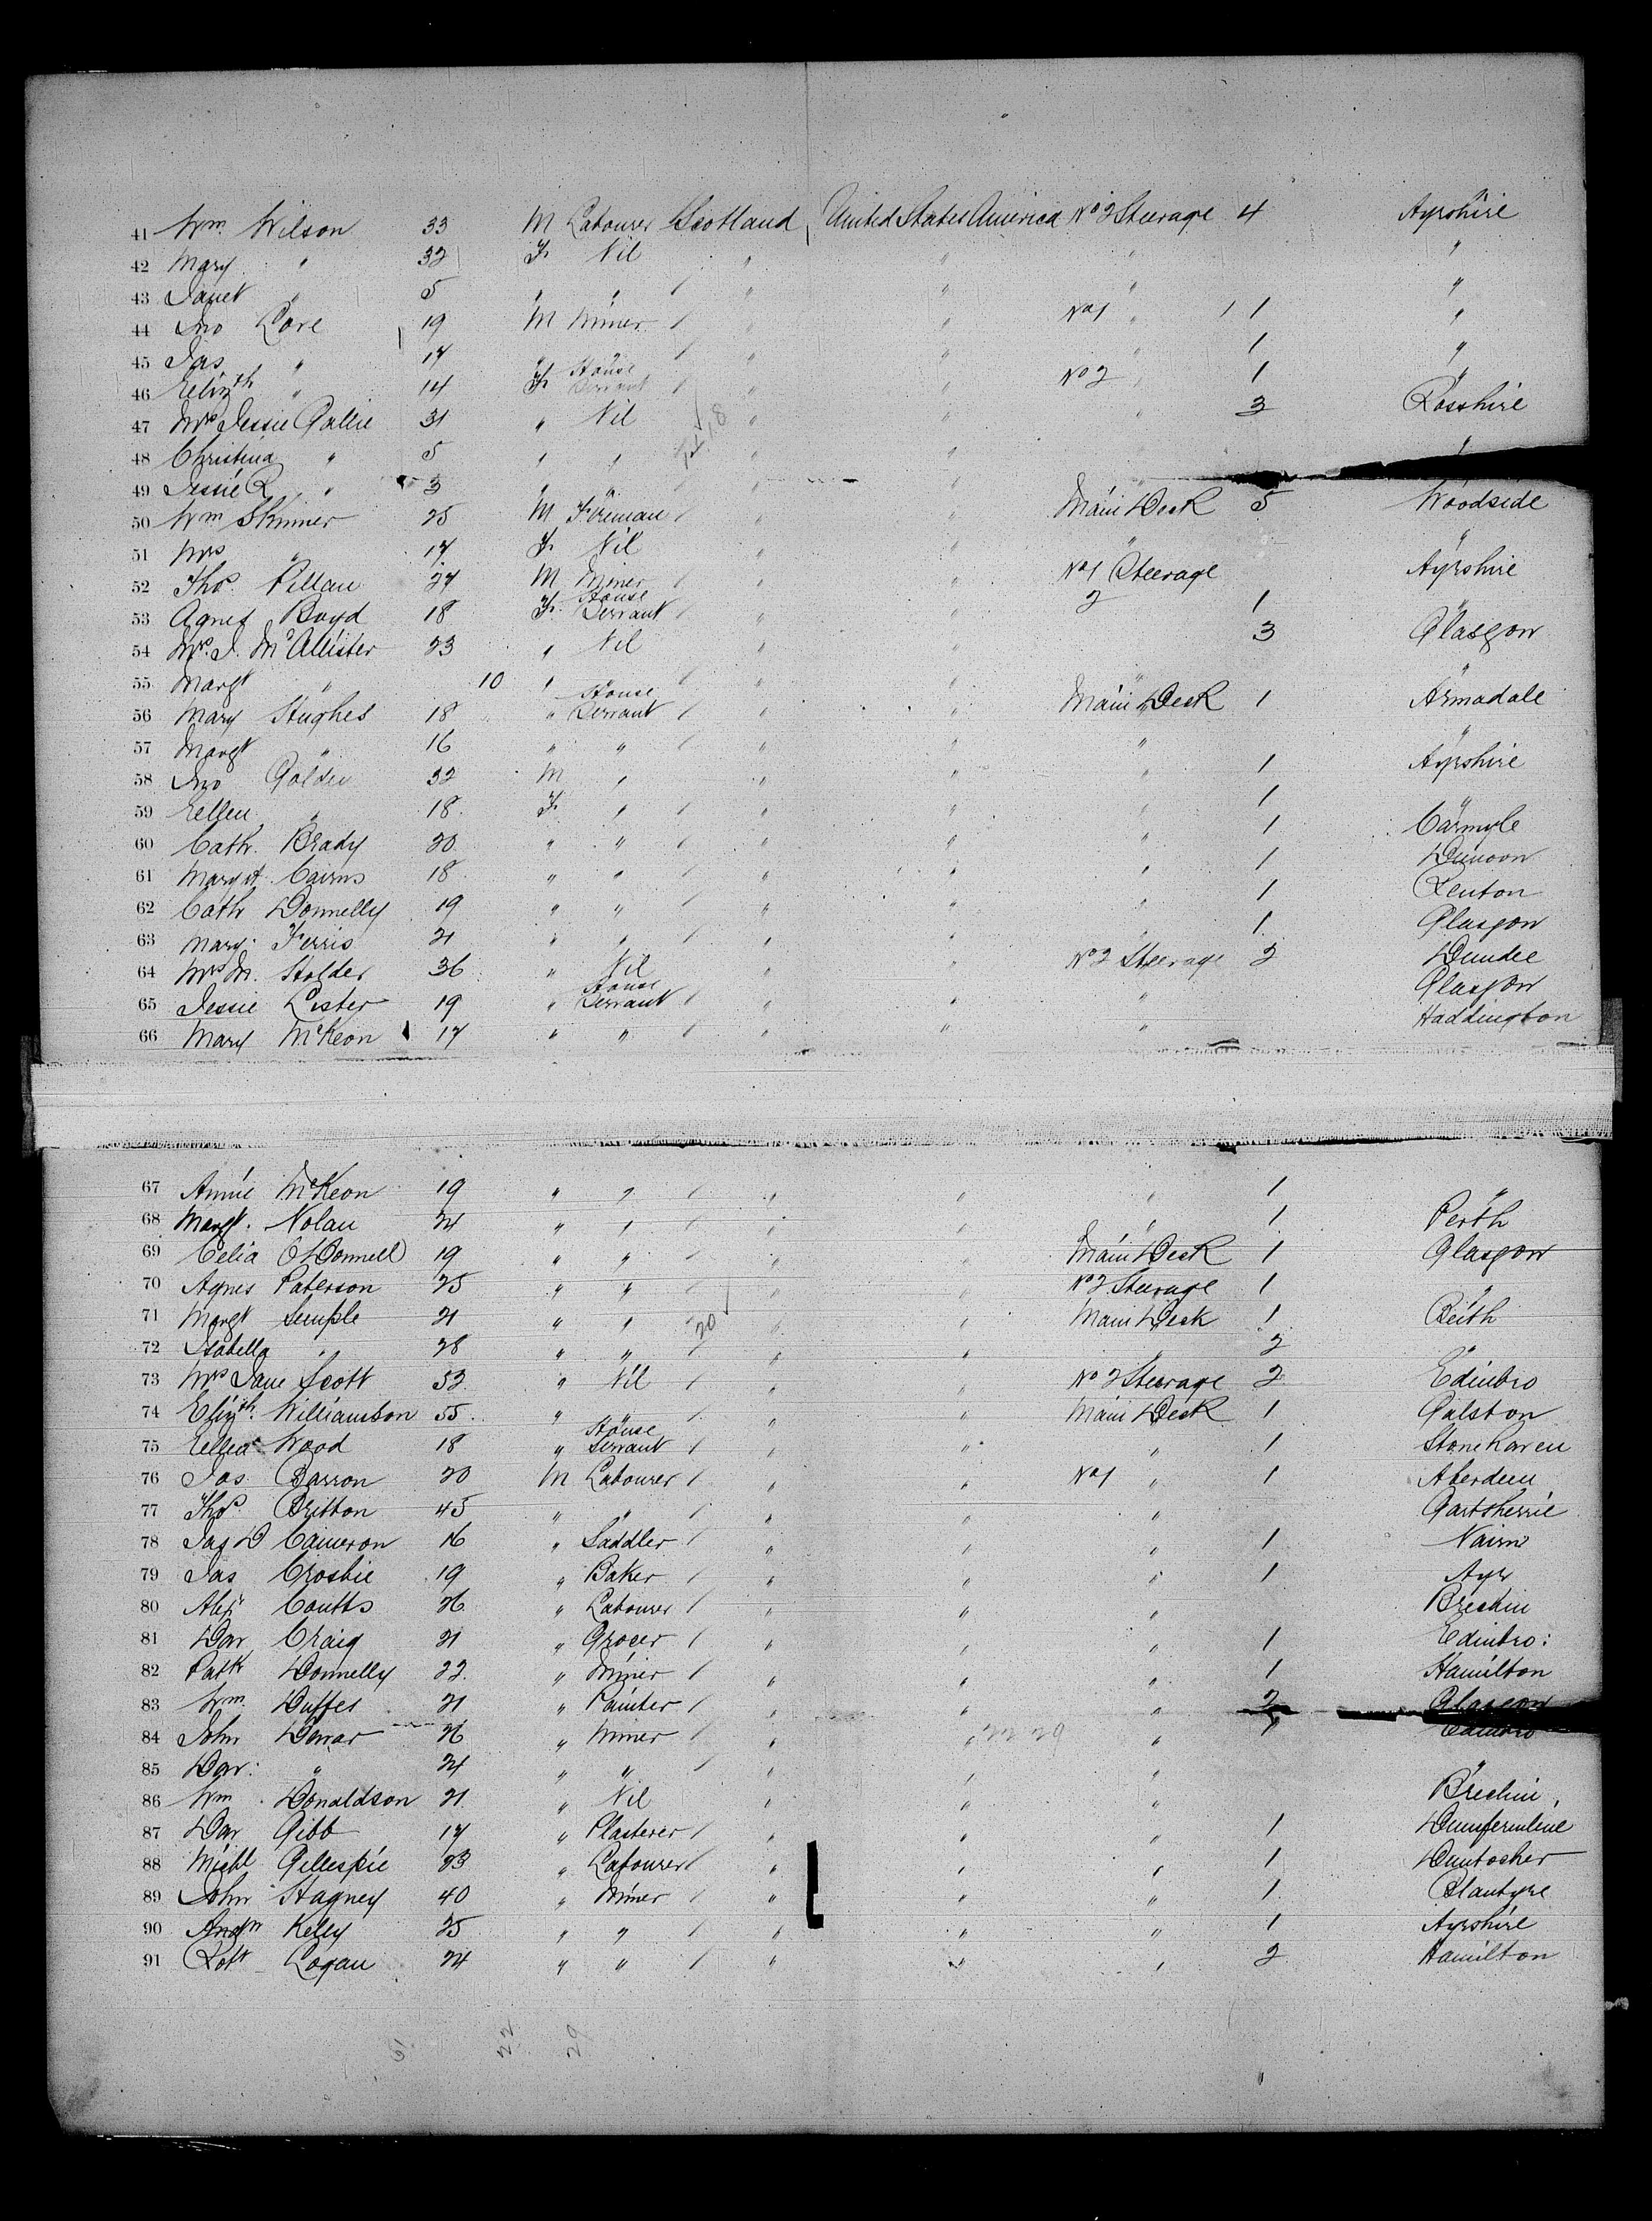 41 Wm. Wilson 33 M Labourer Scotland United States America No 2 Steerage 4 Ayrshire
42 Mary " 32 F. Nil " " " "
43 Janet " 5 " " " " " "
44 Jno Love 19 M Miner " " No 1 " 1 1 "
45 Jas " 17 " " " " " 1 "
46 Elizth " 14 F. House Servant " " No 2 " 1 "
47 Mrs Jessie Gallie 31 " Nil " " " 3 Rosshire
48 Christina " 5 " " " " "
49 Jessie R " 3 " " " " "
50 Wm Skinner 25 M Fireman " " Main Deck 5 Woodside
51 Mrs " 17 F. Nil " " " "
52 Thos. Pillan 27 M Miner " " No 1 Steerage Ayrshire
53 Agnes Boyd 18 F. House Servant " " 2 1 "
54 Mrs. J. McAllister 23 " Nil " " 3 Glasgow
55 Margt " 10 " " " " " "
56 Mary Hughes 18 " House Servant " " Main Deck 1 Armadale
57 Margt " 16 " " " " " "
58 Jno Goldie 32 M " " " " 1 Ayrshire
59 Ellen " 18 F. " " " " 1 "
60 Cath. Brady 20 " " " " " 1 Carmyle
61 Margt. Cairns 18 " " " " " 1 Dunoon
62 Cath Donnelly 19 " " " " " 1 Renton
63 Mary Ferris 21 " " " " " 1 Glasgow
64 Mrs M. Holder 36 " Nil " " No 2 Steerage 2 Dundee
65 Jessie Lister 19 " House Servant " " " Glasgow
66 Mary McKeon 17 " " " " " Haddington
67 Annie McKeon 19 " " " " " 1 "
68 Margt. Nolan 24 " " " " " 1 Perth
69 Celia O'Donnell 19 " " " " Main Deck 1 Glasgow
70 Agnes Paterson 25 " " " " No 2 Steerage 1 "
71 Margt Semple 21 " " 20 " " Main Deck 1 Beith
72 Isabella " 28 " " " " " 2 "
73 Mrs Jane Scott 52 " Nil " " No 2 Steerage 2 Edinbro
74 Elizth. Williamson 55 " " " " Main Deck 1 Galston
75 Ellen Wood 18 " House Servant " " " 1 Stonehaven
76 Jas. Barron 20 M Labourer " " No 1 " 1 Aberdeen
77 Thos. Britton 45 " " " " " Gartsherrie
78 Jas D Cameron 16 " Saddler " " " 1 Nairn
79 Jas Crosbie 19 " Baker " " " 1 Ayr
80 Alexr Coutts 26 " Labourer " " " Brechin
81 Dav Craig 21 " Grocer " " " 1 Edinbro:
82 Patk Donnelly 22 " Miner " " " 1 Hamilton
83 Wm. Duffes 21 " Painter " " " 2 Glasgow
84 John Dewar 26 " Miner " " 22 29 " 1 Edinbro
85 Dav: " 24 " " " " " "
86 Wm Donaldson 21 " Nil " " " Brechin
87 Dav Gibb 17 " Plasterer " " " 1 Dumfermline
88 Michl Gillespie 23 " Labourer " " " 1 Duntocher
89 John Hagney 40 " Miner " " " 1 Blantyre
90 Andw Kelly 25 " " " " " 1 Ayrshire
91 Robt Logan 24 " " " " " 2 Hamilton
22 29